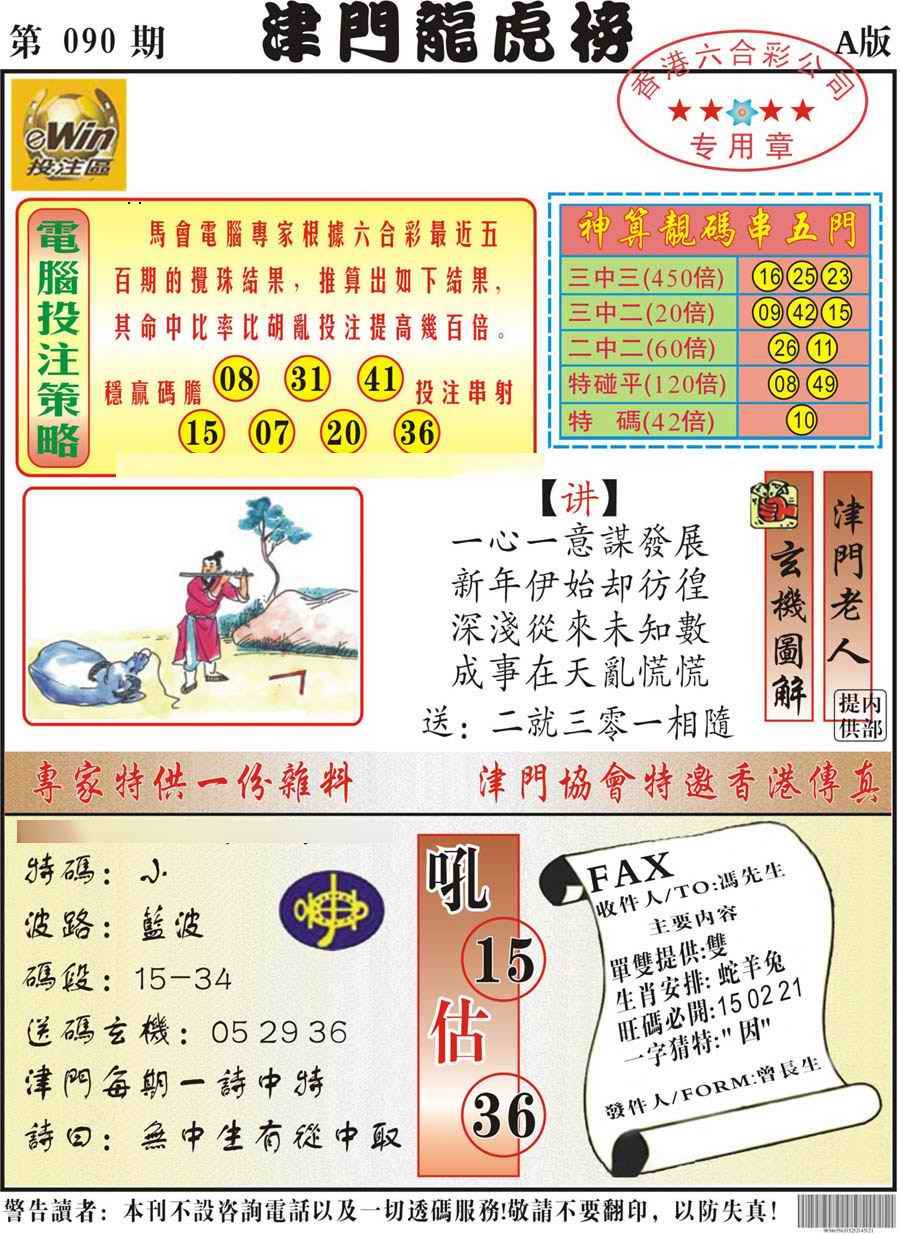 第 090 期
津門龍虎榜
A版
香港六合彩公司
专用章
eWin
投注區
電腦投注策略
馬會電腦專家根據六合彩最近五
百期的攪珠結果，推算出如下結果，
其命中比率比胡亂投注提高幾百倍。
穩贏碼膽 08 31 41 投注串射
15 07 20 36
神算靚碼串五門
三中三(450倍) 16 25 23
三中二(20倍) 09 42 15
二中二(60倍) 26 11
特碰平(120倍) 08 49
特 碼(42倍) 10
【讲】
一心一意謀發展
新年伊始却彷徨
深淺從來未知數
成事在天亂慌慌
送：二就三零一相隨
玄機圖解
津門老人
内部提供
專家特供一份雜料
津門協會特邀香港傳真
特碼：小
波路：藍波
碼段：15-34
送碼玄機：05 29 36
津門每期一詩中特
詩曰：無中生有從中取
吼
15
估
36
FAX
收件人/TO:馮先生
主要内容
單雙提供:雙
生肖安排:蛇羊兔
旺碼必開:15 02 21
一字猜特:"因"
發件人/FORM:曾長生
警告讀者：本刊不設咨詢電話以及一切透碼服務!敬請不要翻印，以防失真！